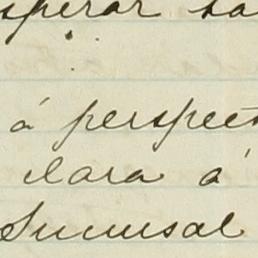 sperar sa
á perspect
clara á
Sucursal